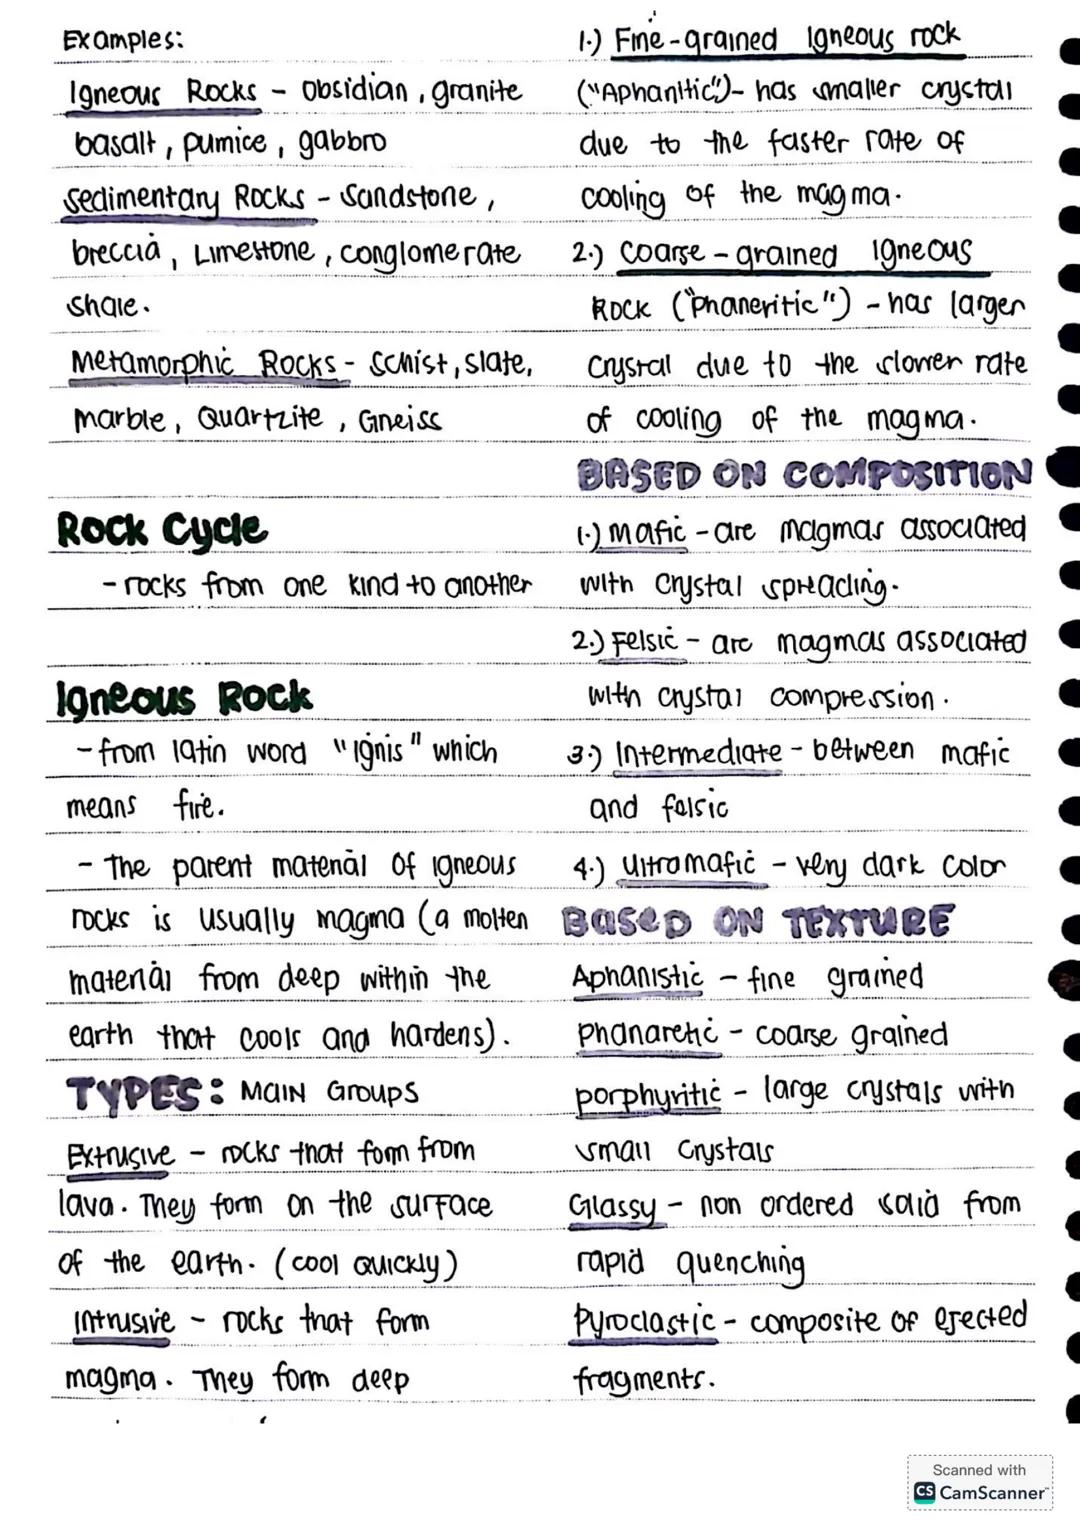 Examples:
Igneous Rocks - Obsidian, granite
basalt, pumice, gabbro
Sedimentary Rocks - Sandstone,
breccia, Limestone, conglomerate
shale.
Metamorphic Rocks - Schist, slate,
marble, Quartzite, Gneiss
Rock Cycle
- rocks from one kind to another
Igneous Rock
- from latin word "ignis" which
means fire.
- The parent material of igneous
rocks is usually magma (a molten
material from deep within the
earth that cools and hardens).
TYPES: MAIN GROUPS
Extrusive - rocks that form from
lava. They form on the surface
of the earth. (cool quickly)
Intrusive - rocks that form
magma. They form deep
1.) Fine-grained Igneous rock
("Aphanitic") - has smaller crystal
due to the faster rate of
cooling of the magma.
2.) Coarse-grained Igneous
Rock ("Phaneritic") - has larger
crystal due to the slower rate
of cooling of the magma.
BASED ON COMPOSITION
1.) Mafic - are magmas associated
with crystal spreading.
2.) Felsic - are magmas associated
with crystal compression.
3.) Intermediate - between mafic
and felsic
4.) Ultramafic - very dark color
BASED ON TEXTURE
Aphanistic - fine grained
Phanaretic - coarse grained
porphyritic - large crystals with
small crystals
Glassy - non ordered solid from
rapid quenching
Pyroclastic - composite of ejected
fragments.
Scanned with
CS CamScanner